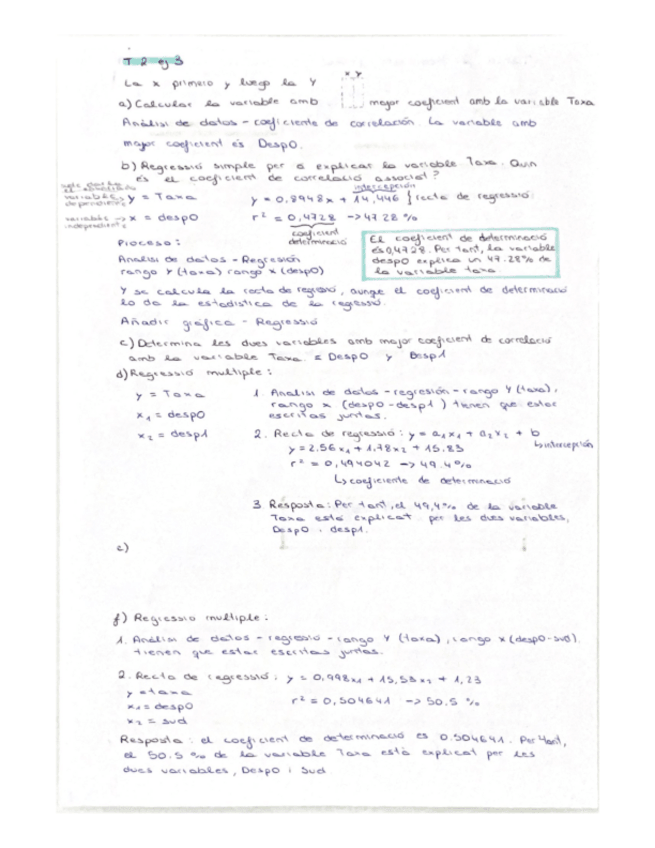 T 2 ej 3
La x primero y luego la y
x y
a) Calcular la variable amb major coeficient amb la variable Taxa
Análisi de datos - coeficiente de correlación. La variable amb
major coeficient és Desp0.
b) Regressió simple per a explicar la variable Taxa. Quin
és el coeficient de correlació associat?
variable dependiente y = Taxa
intercepción
y = 0,8948x + 14,446 } recta de regressió
variable independiente → x = desp0
r² = 0,4728 -> 47.28%
coeficient determinació
El coeficient de determinació
és 0,4728. Per tant, la variable
desp0 explica un 47.28% de
la variable taxa.
Proceso:
Analisi de datos - Regresión
rango y (taxa) rango x (desp0)
Y se calcula la recta de regresió, aunqe el coeficient de determinació
lo da la estadística de la regressió.
Añadir gráfica - Regressió
c) Determina les dues variables amb major coeficient de correlació
amb la variable Taxa. = Desp0 y Desp1
d) Regressió multiple:
y = Taxa
x₁ = desp0
x₂ = desp1
1. Analisi de datos - regresión - rango y (taxa),
rango x (desp0 - desp1) tienen que estar
escritas juntas.
2. Recta de regressió: y = a₁x₁ + a₂x₂ + b
↳ intercepción
y = 2.56x₁ + 1.78x₂ + 15.83
r² = 0,494042 -> 49.4%
↳ coeficiente de determinació
3. Resposta: Per tant, el 49,4% de la variable
Taxa está explicat per les dues variables,
Desp0 i desp1.
e)
f) Regressio multiple:
1. Análisi de datos - regressio - rango y (taxa), rango x (desp0-sud).
tienen que estar escritas juntas.
2. Recta de regressió: y = 0,998x₁ + 15,53x₂ + 1,23
y = taxa
r² = 0,504641 -> 50.5 %
x₁ = desp0
x₂ = sud
Resposta: el coeficient de determinació és 0.504641. Per tant,
el 50.5 % de la variable Taxa està explicat per les
dues variables, Desp0 i Sud